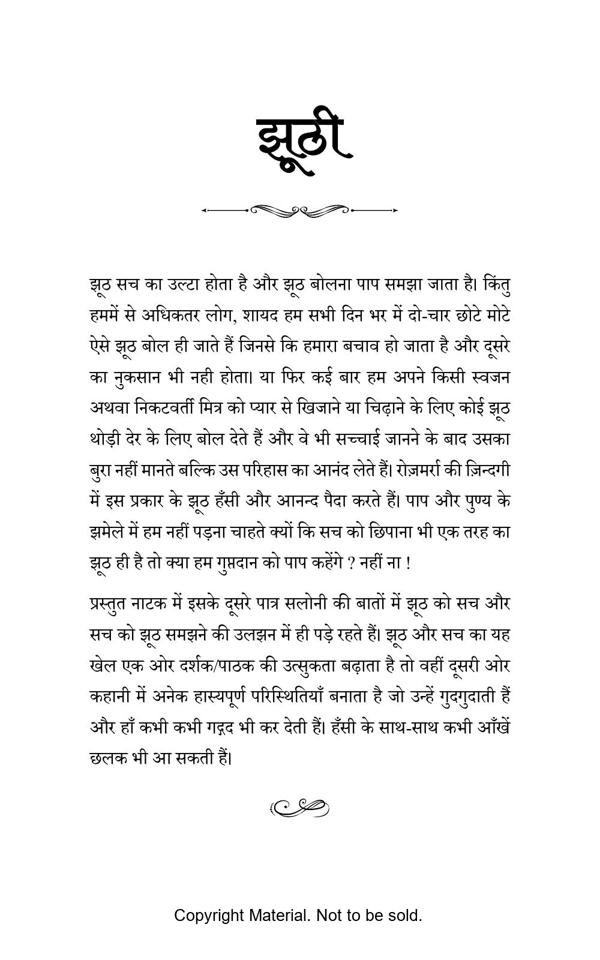 झूठी
झूठ सच का उल्टा होता है और झूठ बोलना पाप समझा जाता है। किंतु
हममें से अधिकतर लोग, शायद हम सभी दिन भर में दो-चार छोटे मोटे
ऐसे झूठ बोल ही जाते हैं जिनसे कि हमारा बचाव हो जाता है और दूसरे
का नुकसान भी नही होता। या फिर कई बार हम अपने किसी स्वजन
अथवा निकटवर्ती मित्र को प्यार से खिजाने या चिढ़ाने के लिए कोई झूठ
थोड़ी देर के लिए बोल देते हैं और वे भी सच्चाई जानने के बाद उसका
बुरा नहीं मानते बल्कि उस परिहास का आनंद लेते हैं। रोज़मर्रा की ज़िन्दगी
में इस प्रकार के झूठ हँसी और आनन्द पैदा करते हैं। पाप और पुण्य के
झमेले में हम नहीं पड़ना चाहते क्यों कि सच को छिपाना भी एक तरह का
झूठ ही है तो क्या हम गुप्तदान को पाप कहेंगे ? नहीं ना !
प्रस्तुत नाटक में इसके दूसरे पात्र सलोनी की बातों में झूठ को सच और
सच को झूठ समझने की उलझन में ही पड़े रहते हैं। झूठ और सच का यह
खेल एक ओर दर्शक/पाठक की उत्सुकता बढ़ाता है तो वहीं दूसरी ओर
कहानी में अनेक हास्यपूर्ण परिस्थितियाँ बनाता है जो उन्हें गुदगुदाती हैं
और हाँ कभी कभी गद्गद भी कर देती हैं। हँसी के साथ-साथ कभी आँखें
छलक भी आ सकती हैं।
Copyright Material. Not to be sold.